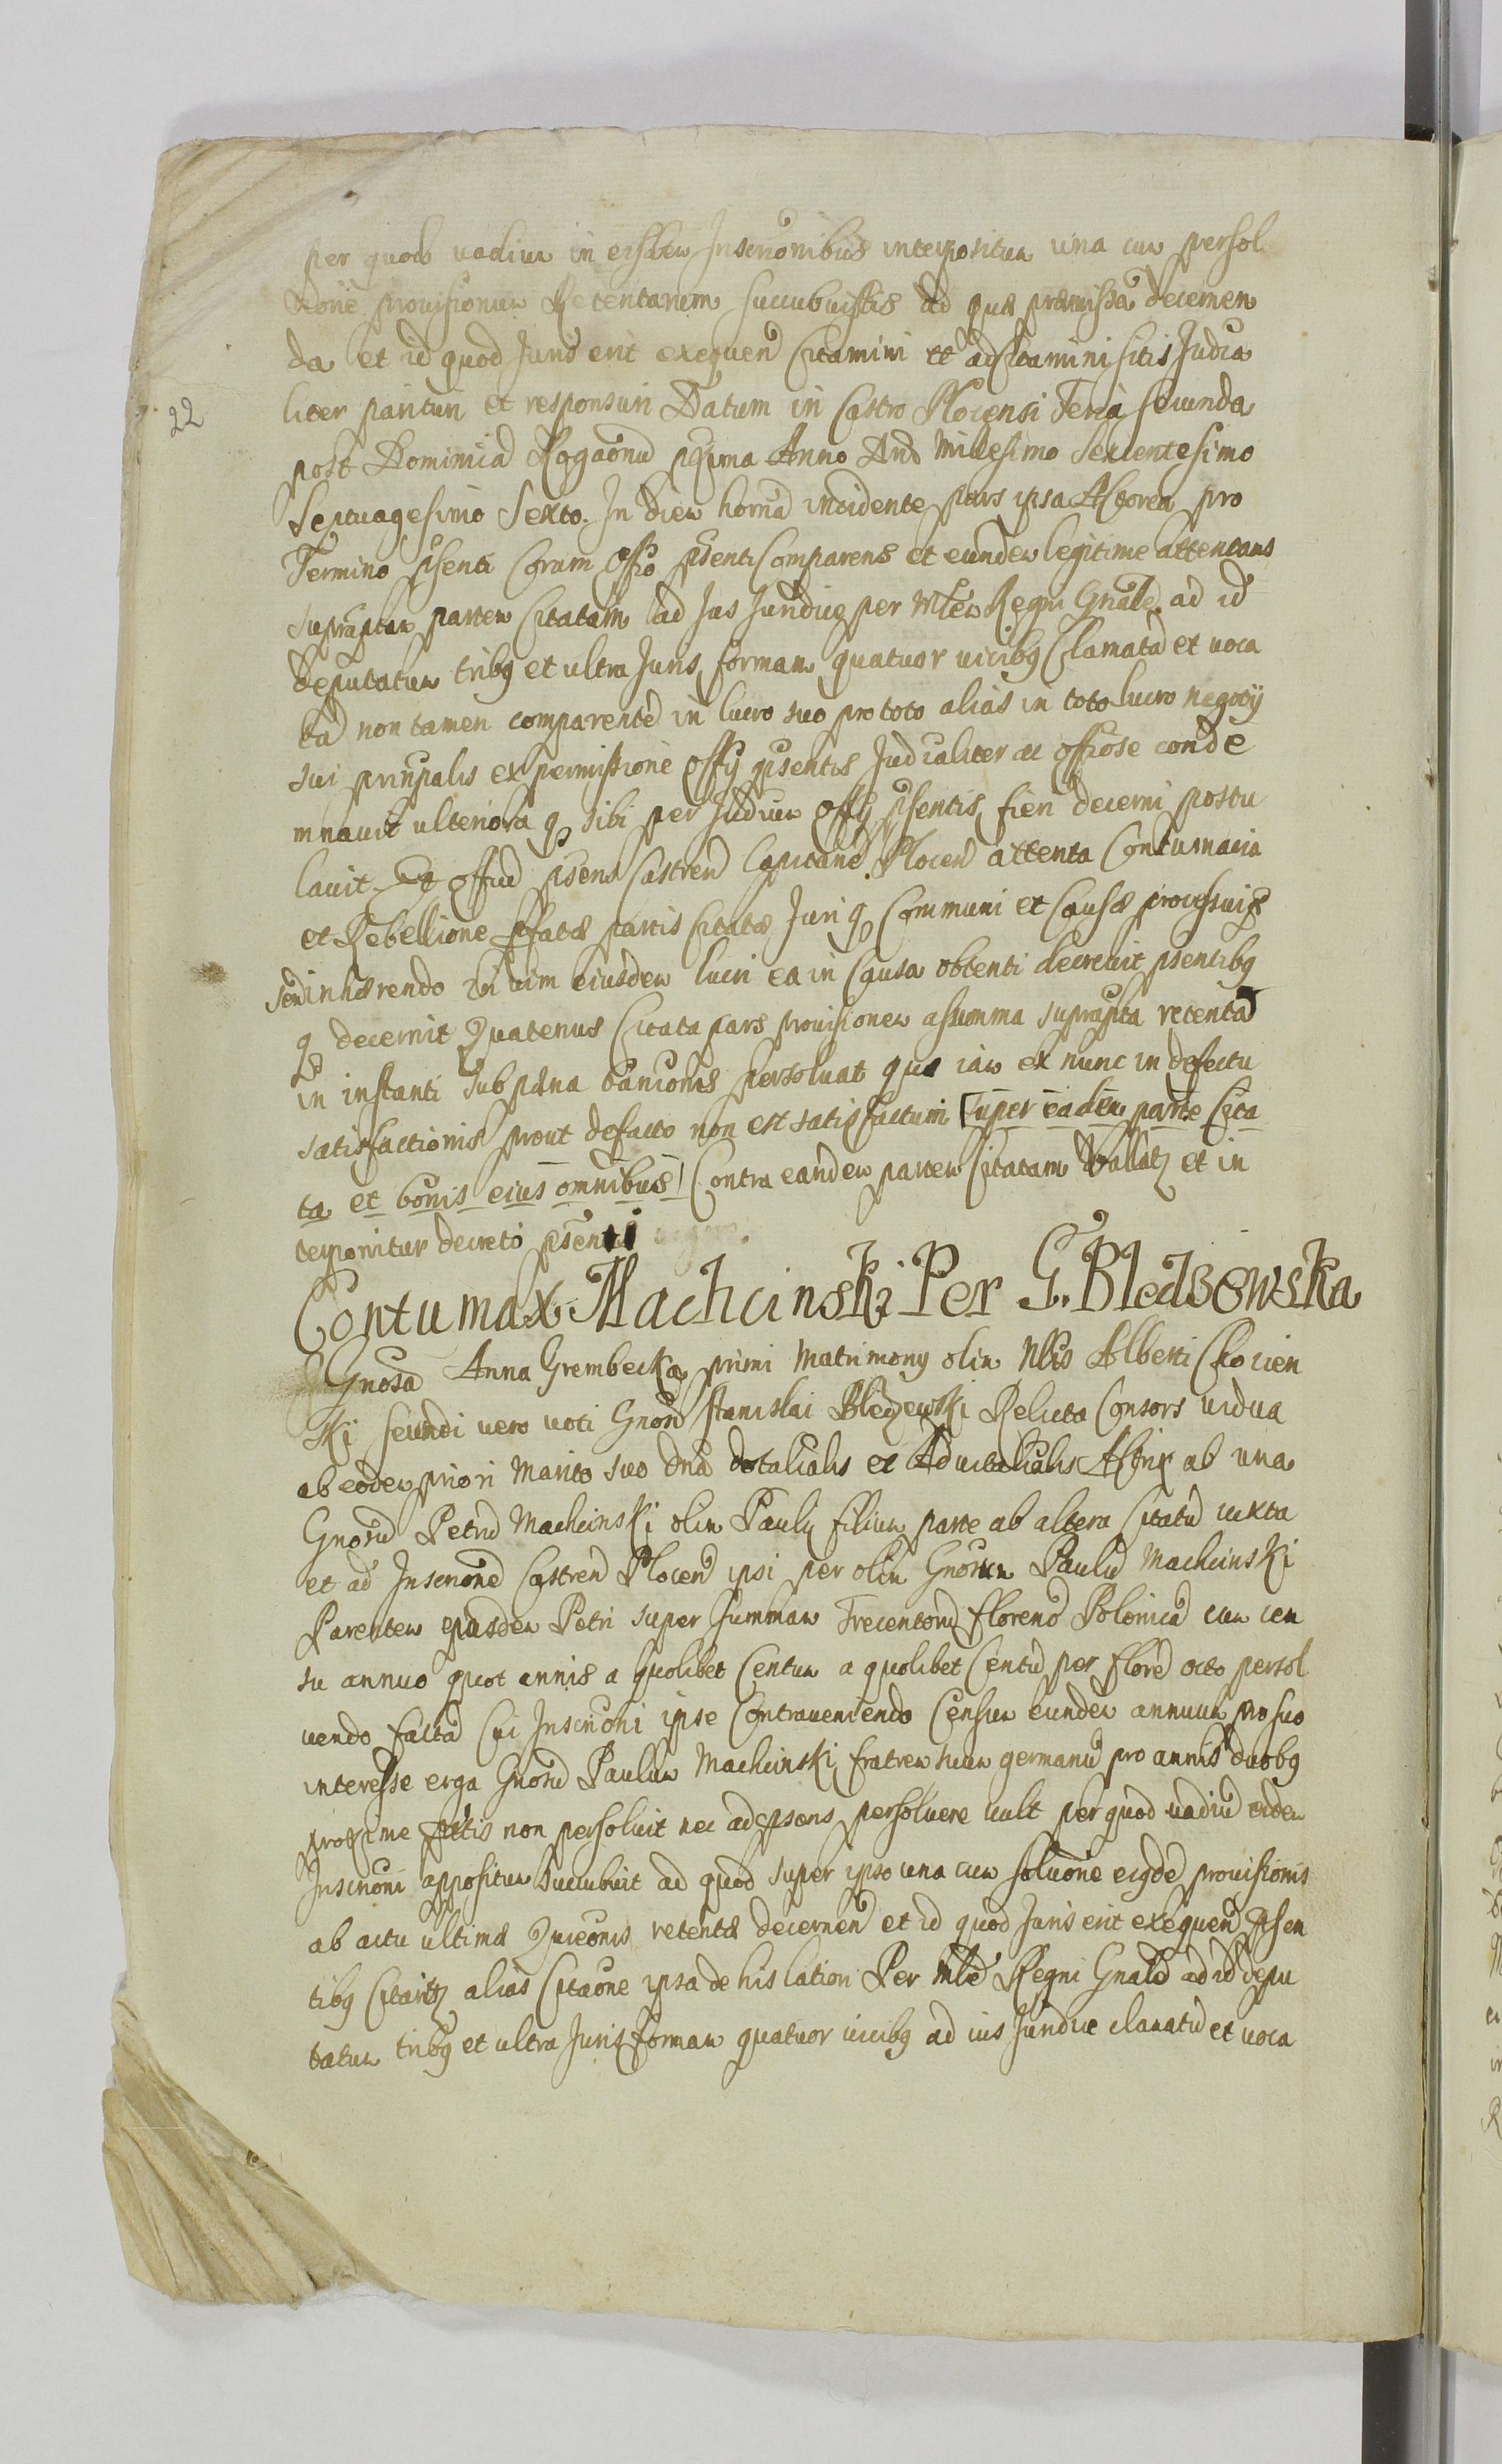 per quod uadium in eisdem Inscrionibus interpositum una cum persol
uone prouisionum Retentarum succubuistis ad quæ præmissa decernen
da et id quod Juris erit exequen Citamini et adCitamini sitis Judicia
liter parituri et responsuri Datum in Castro Plocensi Feria secunda
22
post Dominicã Rogaonũ pxima Anno Dnõ Millesimo Sexcentesimo
Septuagesimo Sexto. In diem hornã incidente Pars ipsa Actorea pro
Termino psenti Coram Offo psenti Comparens et eundem legitime attentans
supraptam partem Citatam ad Jus Juridice per Mlem Regni Gnale ad id
deputatum tribq et ultra Juris formam quatuor uicibq Clamatã et uoca
tã non tamen comparentẽ in lucro suo pro toto alias in toto lucro negotij
sui principalis ex permissione Offij psentis Judicialiter ac offiose conde
mnauit ulteriora q sibi per Judicium Offij psentis fieri decerni postu
lauit Et Offiũ psens Castren Capitane Plocen attenta Contumacia
et Rebellione pfatæ partis Citatæ Juri q Communi et Causæ processuiq
inhærendo in uim eiusdem lucri ea in Causa obtenti decreuit psentibq
q decernit Quatenus Citata pars prouisionem a summa suprapta retentã
in instanti sub pæna banionis persoluat quæ iam ex nunc in defectu
satisfactionis prout defacto non est satisfactum super eadem parte Cita
ta et bonis eius omnibus Contra eandem partem Citatam uallat et in
terponitur decreto psenti
Contumax Machcinski Per G. Bledzowska
Gnosa Anna Grembecka primi Matrimony olim Nlis Alberti Chocien
ski secundi uero uoti Gnosi Stanislai Bledzewski Relicta Consors uidua
ab eodem priori Marito suo Dna dotalialis et Aduitalialis Actrix ab una
Gnosũ Petrũ Machcinski olim Pauli filium parte ab altera Citatũ iuxta
et ad Inscrionẽ Castren Plocen ipsi per olim Gnosum Paulũ Machcinski
Parentem eiusdem Petri super summam Trecentorũ florenõ Polonicã cum cen
su annuo quot annis a quolibet Centum a quolibet Centũ per flore octo persol
uendo factã Cui Inscrioni ipse Contraueniendo Censum eundem annuum pro suo
interesse erga Gnosũ Paulum Machcinski fratrem suum germanũ pro annis duobq
proxime pttis non persoluit nec ad psens persoluere uult per quod uadiũ eidem
Inscrioni appositum succubuit ad quod super ipso una cum soluone eiqdẽ prouisionis
ab actu ultimæ Quieonis retentæ decernen et id quod Juris erit exequen psen
tibq Citat alias Citaone ipsa de his lation Per Mlẽ Regni Gnalẽ ad id depu
tatum tribq et ultra Juris formam quatuor uicibq ad ius Juridice clamatũ et uoca